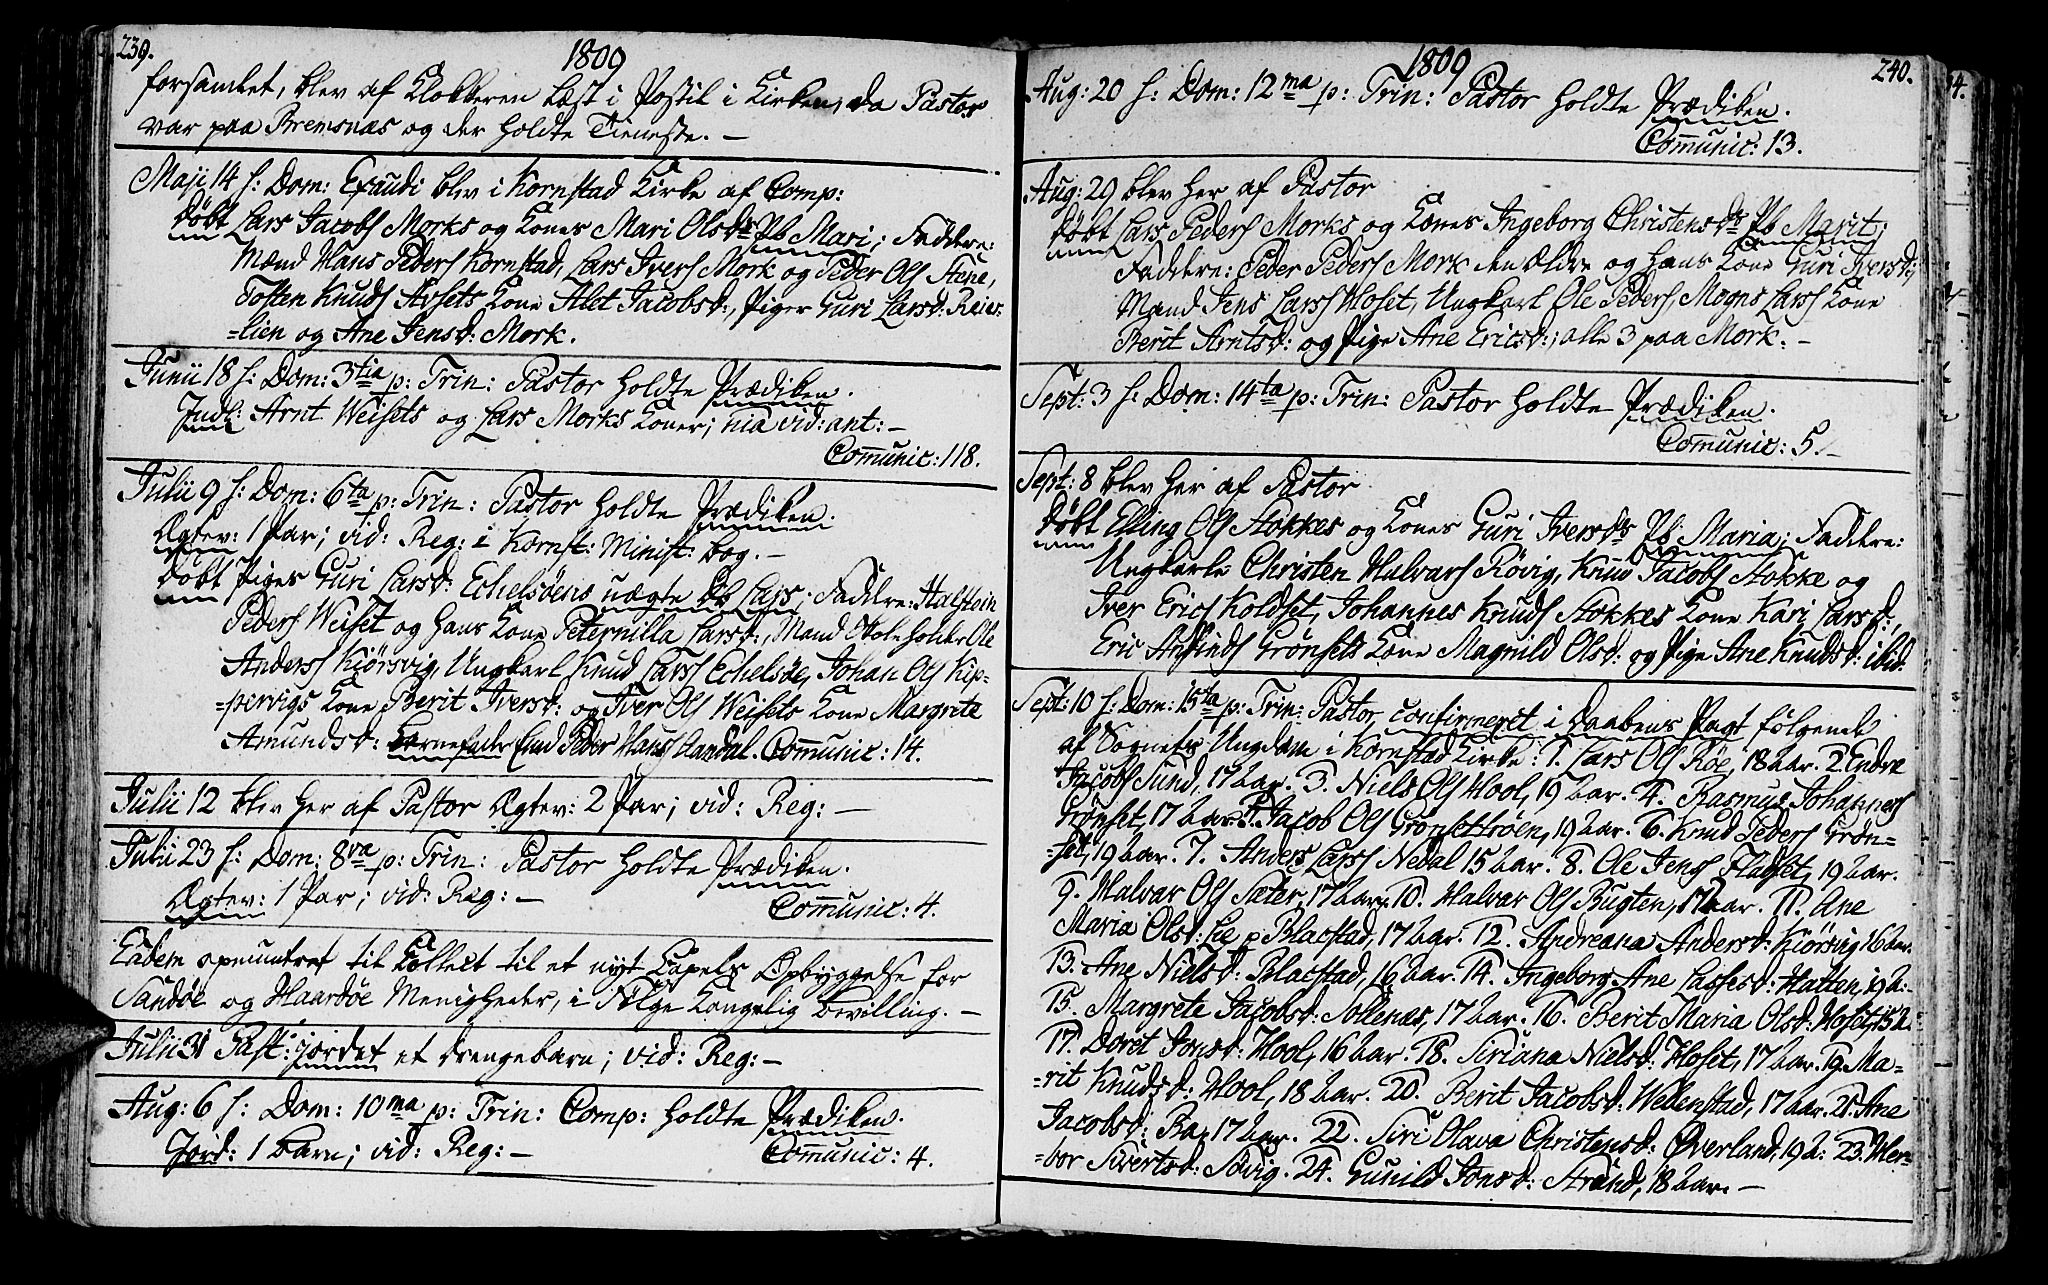 239.
1809
forsamlet, blev af Klokkeren læst i Postil i Kirken, da Pastor
var paa Bremsnæs og der holdte Tieneste. —
Maji 14 h: Dom: Exaudi blev i Kornstad Kirke af Comp:
døbt Lars Jacobs Morks og Kones Mari Olsdr Pb Mari; Faddere:
Mænd Hans Peders Kornstad, Lars Ivers Mork og Peder Ols Stene,
Tosten Knuds Avsets Kone Alet Jacobsd:, Piger Guri Larsd: Reier-
=lien og Ane Jensd: Mork.
Junii 18 h: Dom: 3tia p: Trin: Pastor holdte Prædiken.
Indl: Arnt Weisets og Lars Morks Koner; nia vid: ant: —
Communic: 118.
Julii 9 h: Dom: 6ta p: Trin: Pastor holdte Prædiken.
Ægtev: 1 Par; vid: Reg: i Kornst: Minist: bog. —
døbt Piges Guri Larsd: Echelsöens uægte Db Lars; Faddere: Halstein
Peders Weiset og hans Kone Peternilla Larsd:, Mand Ole Ole
Anders Kiörsvig, Ungkarl Knud Lars Echelsöe, Johan Ols Kip-
=pervigs Kone Berit Iversd: og Iver Ols Weisets Kone Margrete
Amundsd: Barnefader Peder Hans Communic: 14.
Julii 12 blev her af Pastor Ægtev: 2 Par; vid: Reg: —
Julii 23 h: Dom: 8va p: Trin: Pastor holdte Prædiken.
Ægtev: 1 Par; vid: Reg: — Communic: 4.
Eadem opmuntret til Collect til et nyt Capels Opbyggelse for
Sandöe og Haardöe Menigheder, i Følge Kongelig bevilling. —
Julii 31 Past: jordet et Drengebarn; vid: Reg: —
Aug: 6 h: Dom: 10ma p: Trin: Comp: holdte Prædiken.
Jord: 1 barn; vid: Reg: — Communic: 4.
1809
240.
Aug: 20 h: Dom: 12ma p: Trin: Pastor holdte Prædiken.
Communic: 13.
Aug: 29 blev her af Pastor
døbt Lars Peders Morks og Kones Ingeborg Christensdr Pb Marit;
Faddere: Peder Peders Mork den ældre og hans Kone Guri Iversd:,
Mand Jens Lars Hoset, Ungkarl Ole Peders, Mogns Lars Kone
Berit Arntsd: og Pige Ane Ericsd:, alle 3 paa Mork. —
Sept: 3 h: Dom: 14ta p: Trin: Pastor holdte Prædiken.
Communic: 5. —
Sept: 8 blev her af Pastor
døbt Elling Ols Stokkes og Kones Guri Iversdr Pb Maria; Faddere:
Ungkarle Christen Halvars Rövig, Knud Jacobs Stokke og
Iver Erics Koldset, Johannes Knuds Stokkes Kone Kari Larsd:,
Eric Grönsets Kone Magnild Olsd: og Pige Ane Knudsd: ibid:
Sept: 10 h: Dom: 15ta p: Trin: Pastor confirmeret i Daabens Pagt følgende
af Sognets Ungdom i Kornstad Kirke: 1. Lars Ols Röe, 18 aar. 2. Endre
Jacobs Sund, 17 aar. 3. Niels Ols Hool, 19 aar. 4. Rasmus Johannes
Grönset, 17 aar. 5. Jacob Ols Grönsettröen, 19 aar. 6. Knud Peders Grön-
=set, 19 aar. 7. Anders Lars Nedal 15 aar. 8. Ole Jens Fladset, 19 aar.
9. Halvar Ols Sæter, 17 aar. 10. Halvar Ols Bugten, 17 aar. 11. Ane
Maria Olsd: Lie p Blacstad, 17 aar. 12. Andreana Andersd: Kiörsvig 16 aar.
13. Ane Nielsd: Blacstad, 16 aar. 14. Ingeborg Ane Lassesd: Hatten, 19 a:
15. Margrete Jacobsd: Solenæs, 17 aar. 16. Berit Maria Olsd: Hoset, 15 a.
17. Doret Jonsd: Hool, 16 aar. 18. Siriana Nielsd: Hoset, 17 aar. 19. Ma-
=rit Knudsd: Hool, 18 aar. 20. Berit Jacobsd: Wevenstad, 17 aar. 21. Ane
Jacobsd: Bae, 17 aar. 22. Siri Olava Christensd: Överland, 19 a: 23. Mer-
=bor Sivertsd: Sövig. 24. Gunild Jonsd: Strand, 18 aar. —